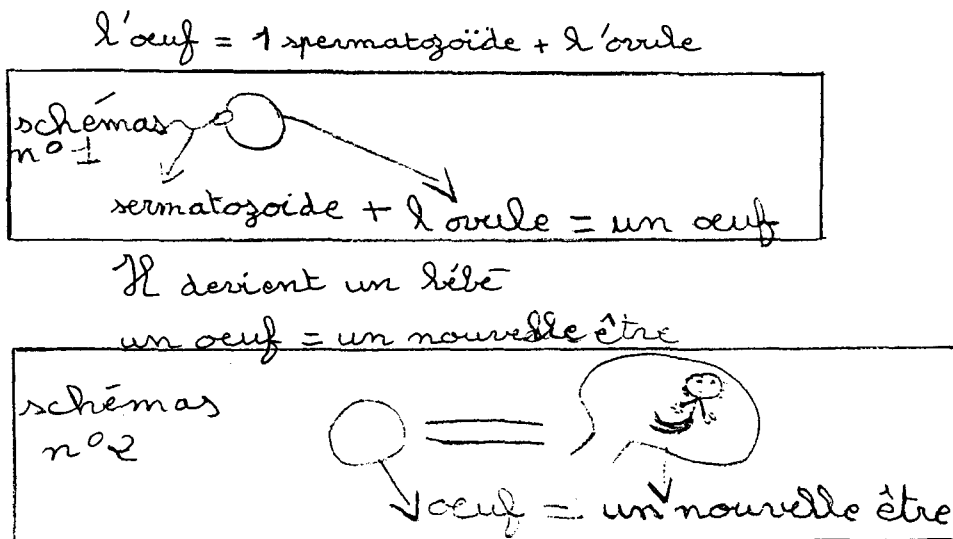 l'œuf = 1 spermatozoïde + l'ovule
schémas
n° 1
sermatozoide + l ovule = un œuf
Il devient un bébé
un œuf = un nouvelle être
schémas
n° 2
œuf = un nouvelle être